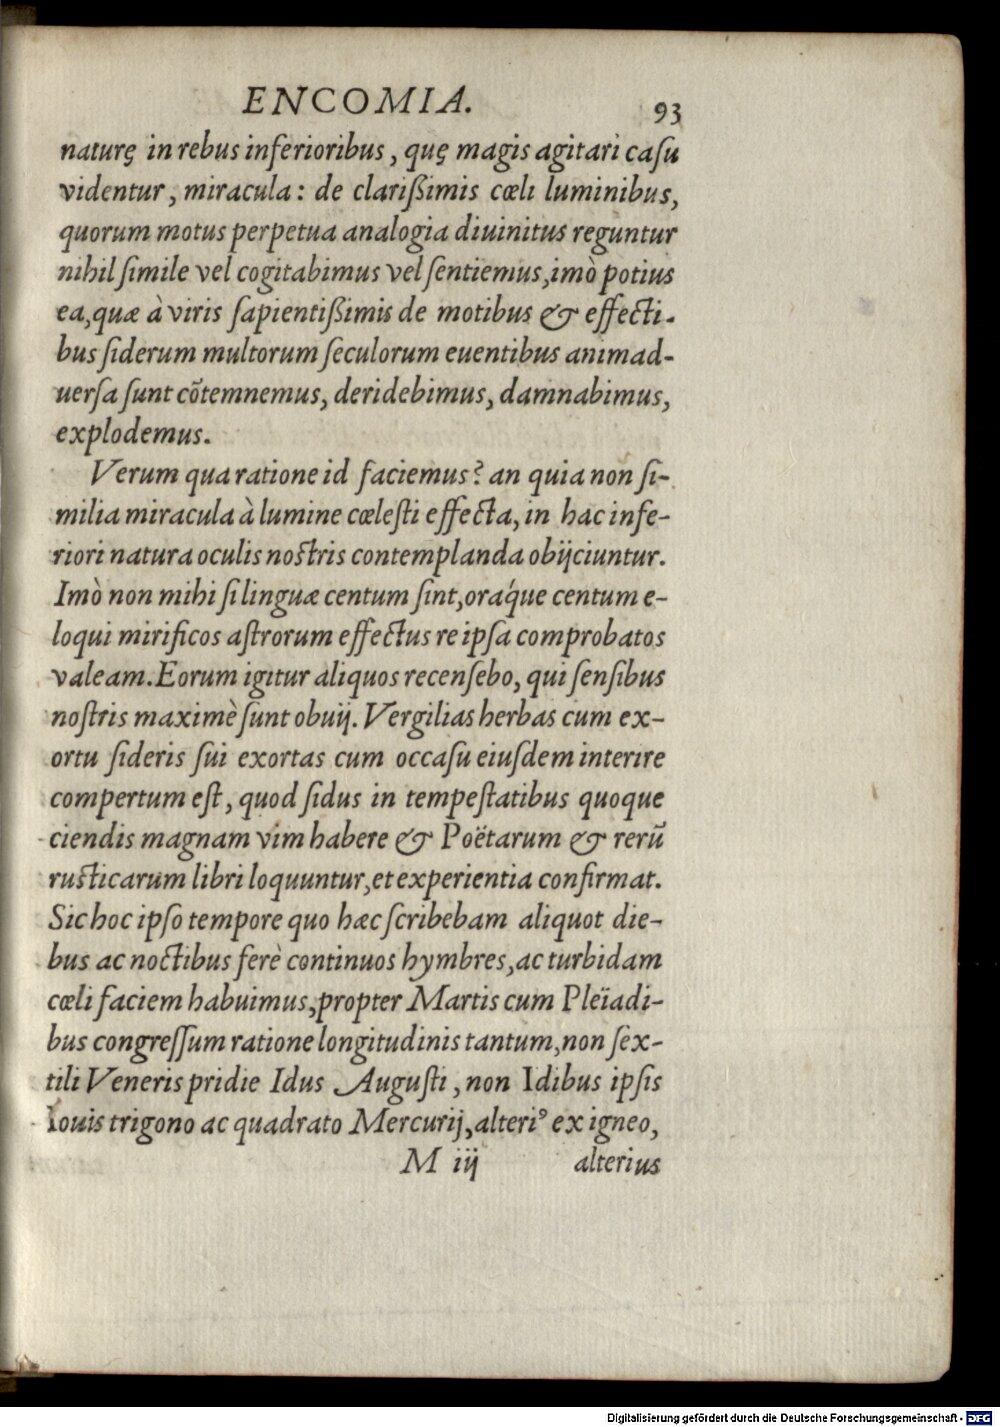 ENCOMIA. 93
naturę in rebus inferioribus, quę magis agitari caſu
videntur, miracula: de clarißimis cœli luminibus,
quorum motus perpetua analogia diuinitus reguntur
nihil ſimile vel cogitabimus vel ſentiemus, imò potius
ea, quæ à viris ſapientißimis de motibus & effecti-
bus ſiderum multorum ſeculorum euentibus animad-
uerſa ſunt cõtemnemus, deridebimus, damnabimus,
explodemus.
Verum qua ratione id faciemus? an quia non ſi-
milia miracula à lumine cœleſti effecta, in hac infe-
riori natura oculis nostris contemplanda obijciuntur.
Imò non mihi ſi linguæ centum ſint, oráque centum e-
loqui mirificos aſtrorum effectus re ipſa comprobatos
valeam. Eorum igitur aliquos recenſebo, qui ſenſibus
noſtris maximè ſunt obuij. Vergilias herbas cum ex-
ortu ſideris ſui exortas cum occaſu eiuſdem interire
compertum eſt, quod ſidus in tempeſtatibus quoque
ciendis magnam vim habere & Poëtarum & rerū
rusticarum libri loquuntur, et experientia confirmat.
Sic hoc ipſo tempore quo hæc ſcribebam aliquot die-
bus ac noctibus ferè continuos hymbres, ac turbidam
cœli faciem habuimus, propter Martis cum Pleïadi-
bus congreſſum ratione longitudinis tantum, non ſex-
tili Veneris pridie Idus Auguſti, non Idibus ipſis
Iouis trigono ac quadrato Mercurij, alteriꝰ ex igneo,
M iij alterius
Digitalisierung gefördert durch die Deutsche Forschungsgemeinschaft - DFG